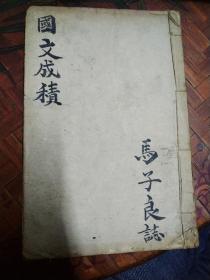 國文成積
馬子良誌